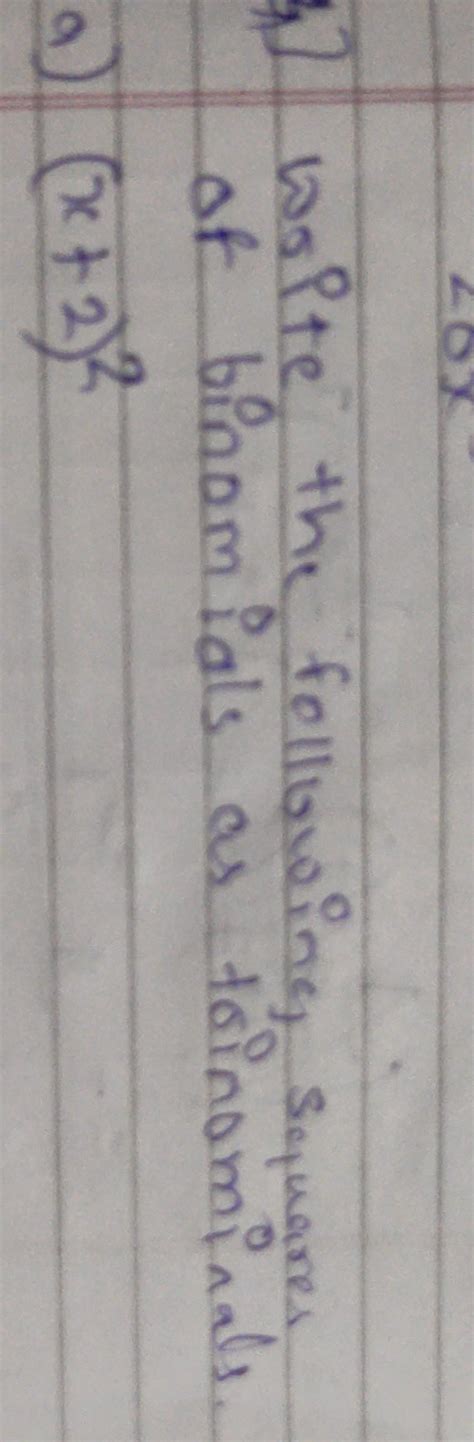 write the following squares
of binomials as trinominals.
a) (x+2)²